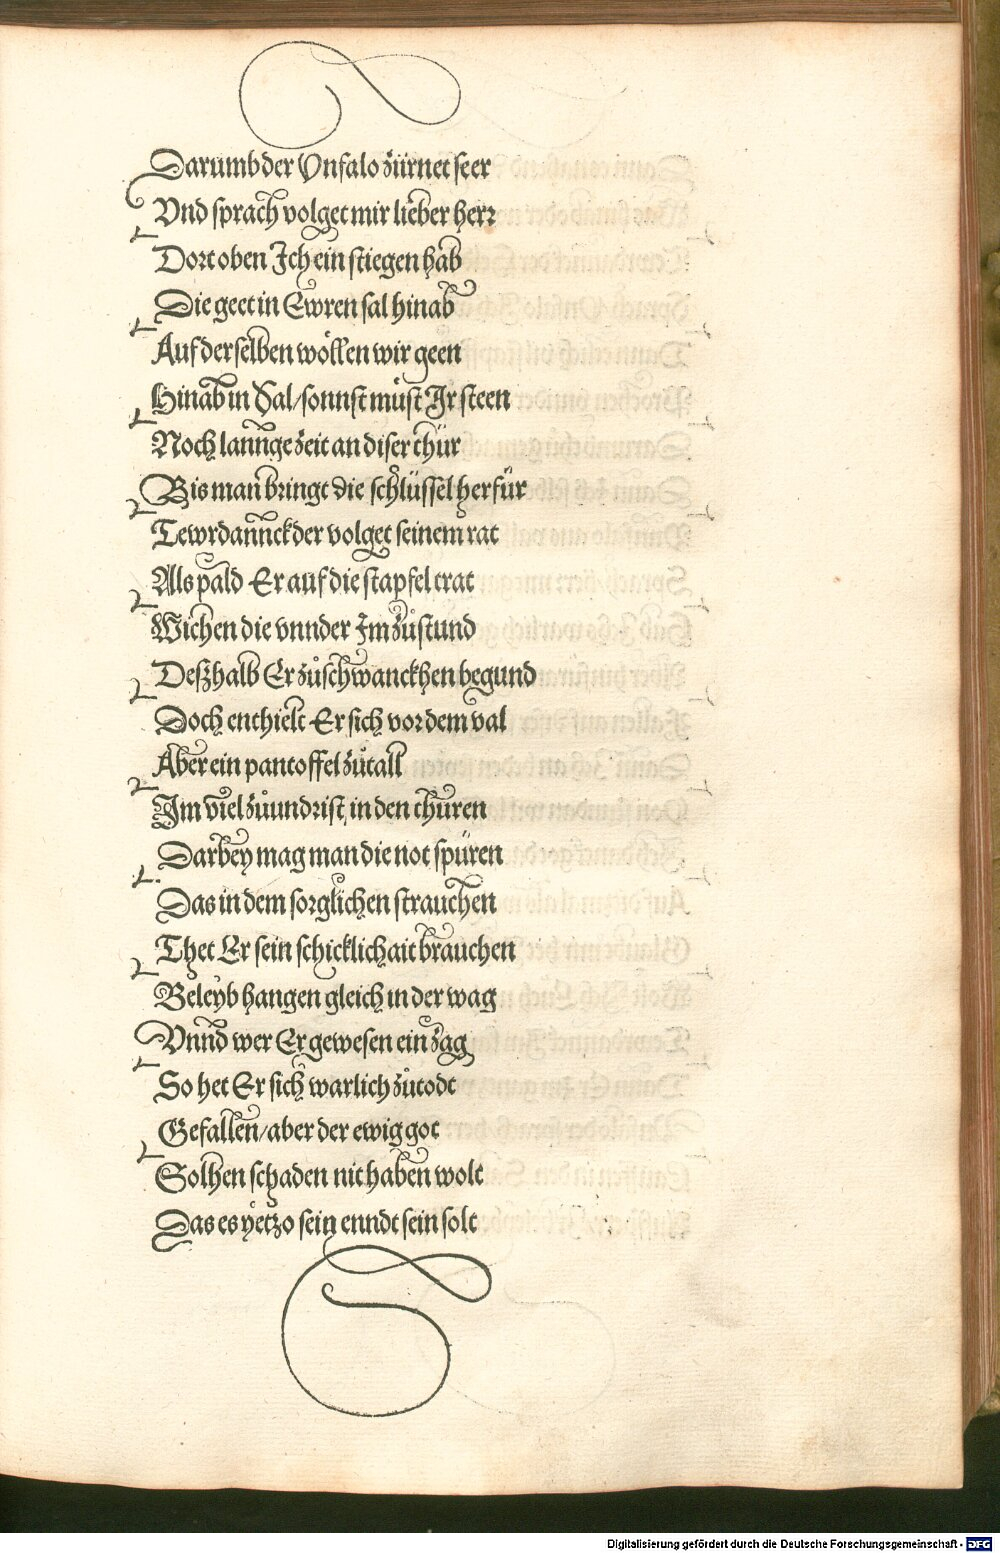 Darumb der Unfalo zürnet seer
Vnd sprach volget mir lieber herr
Dort oben Ich ein stiegen hab
Die geet in Ewren sal hinab
Auf derselben wöllen wir geen
Hinab in Sal/sonnst müst Ir steen
Noch lannge zeit an diser thür
Bis man bringt die schlüssel herfür
Tewrdannck der volget seinem rat
Als pald Er auf die stapfel trat
Wichen die vnnder Im zůstund
Deßhalb Er zůschwanckhen begund
Doch enthielt Er sich vor dem val
Aber ein pantoffel zůtall
Im viel zůundrist, in den thuren
Darbey mag man die not spüren
Das in dem sorglichen strauchen
Thet Er sein schicklichait brauchen
Beleyb hangen gleich in der wag
Vnnd wer Er gewesen ein zag
So het Er sich warlich zůtodt
Gefallen/aber der ewig got
Solhen schaden nit haben wolt
Das es yetzo sein enndt sein solt
Digitalisierung gefördert durch die Deutsche Forschungsgemeinschaft - DFG